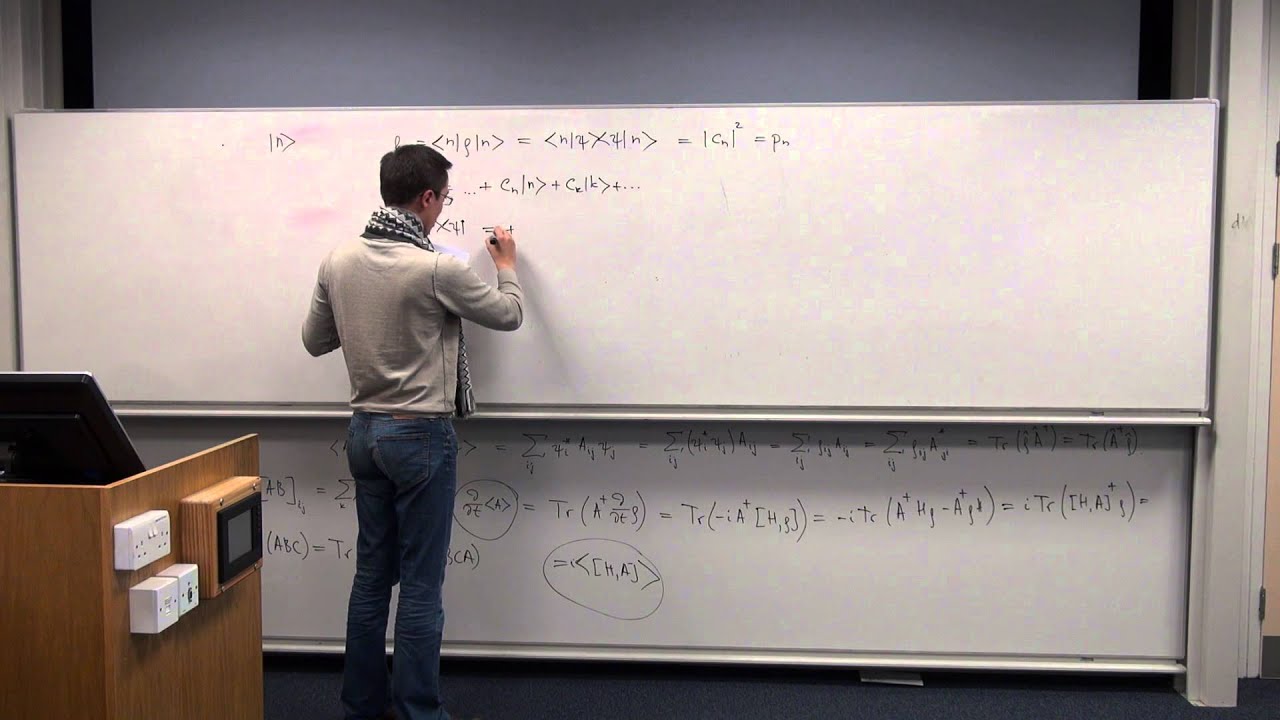 |n> ρ = <n|ρ|n> = <n|ψ><ψ|n> = |Cₙ|² = pₙ
... + Cₙ|n> + Cₖ|k> + ...
><ψ| = +
> = ∑ᵢⱼ ψᵢ* Aᵢⱼ ψⱼ = ∑ᵢⱼ (ψᵢ* ψⱼ) Aᵢⱼ = ∑ᵢⱼ ρᵢⱼ Aᵢⱼ = ∑ᵢⱼ ρᵢⱼ A*ⱼᵢ = Tr (ρ̂ Â⁺) = Tr (Â⁺ ρ̂)
AB]ᵢⱼ = ∑ₖ ∂/∂t <A> = Tr (A⁺ ∂/∂t ρ) = Tr (-i A⁺ [H,ρ]) = -i Tr (A⁺ Hρ - A⁺ρH) = i Tr ([H,A]⁺ ρ) =
(ABC) = Tr CA) = i <[H,A]>